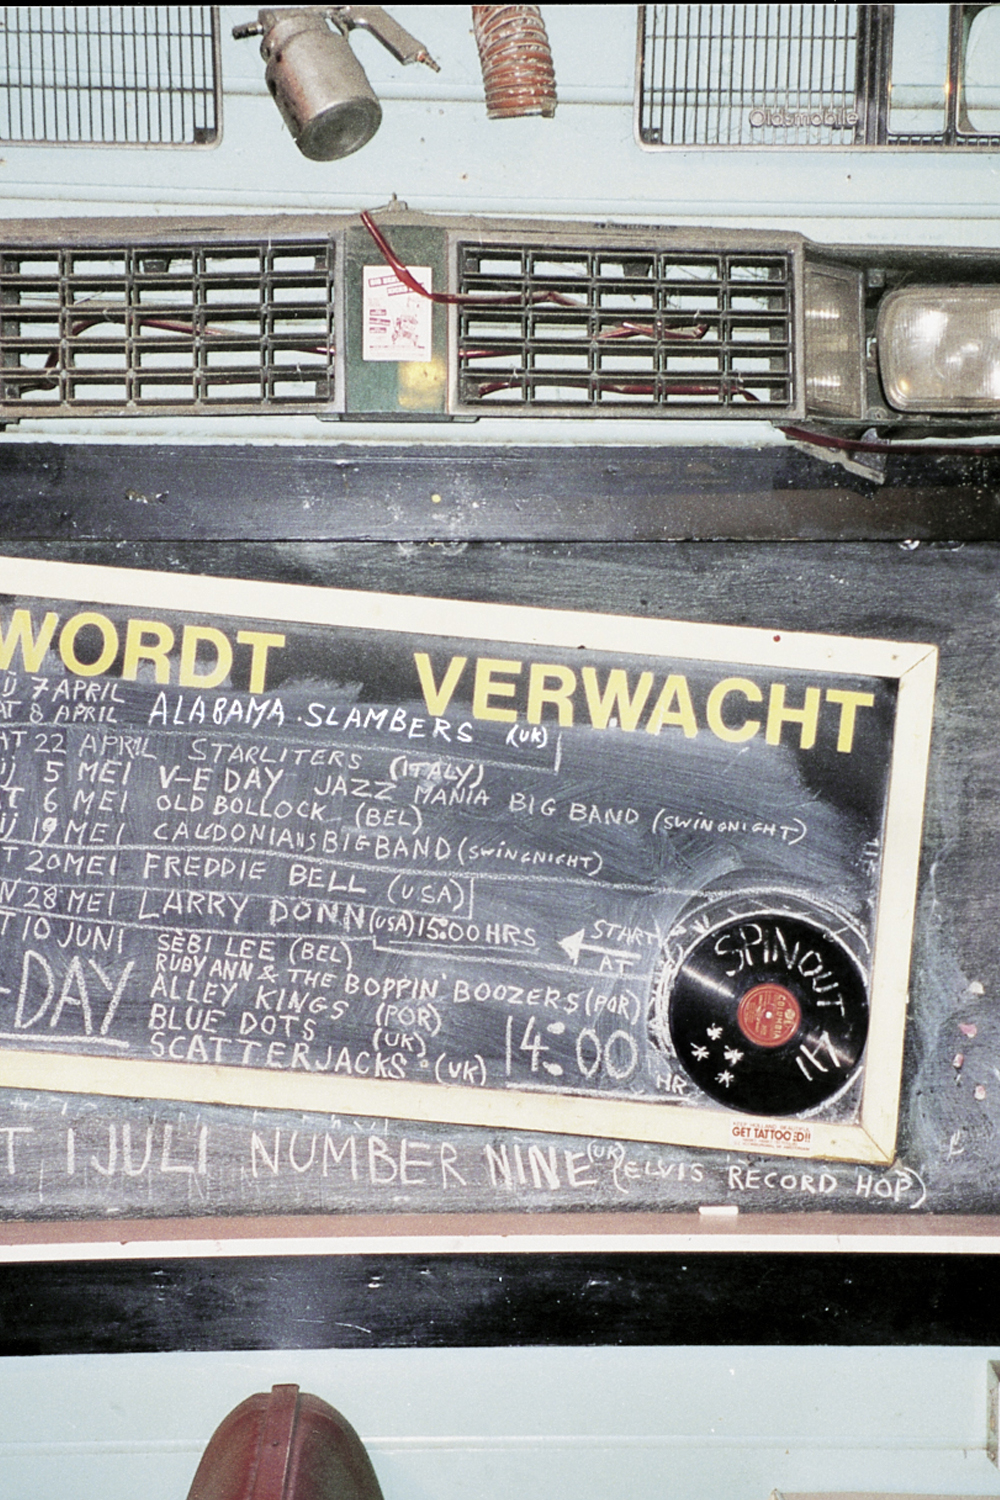 Oldsmobile
WORDT VERWACHT
IJ 7 APRIL
AT 8 APRIL ALABAMA SLAMBERS (UK)
AT 22 APRIL STARLITERS (ITALY)
IJ 5 MEI V-E DAY JAZZ MANIA BIG BAND (SWINGNIGHT)
T 6 MEI OLD BOLLOCK (BEL)
IJ 19 MEI CALEDONIANS BIGBAND (SWINGNIGHT)
T 20 MEI FREDDIE BELL (USA)
N 28 MEI LARRY DONN (USA) 15:00 HRS
T 10 JUNI SÈBI LEE (BEL)
-DAY RUBY ANN & THE BOPPIN' BOOZERS (POR)
ALLEY KINGS (POR)
BLUE DOTS (UK)
SCATTERJACKS (UK)
START AT 14:00 HR
SPINOUT
COLUMBIA
GET TATTOOED!!
T 1 JULI NUMBER NINE (UK) (ELVIS RECORD HOP)